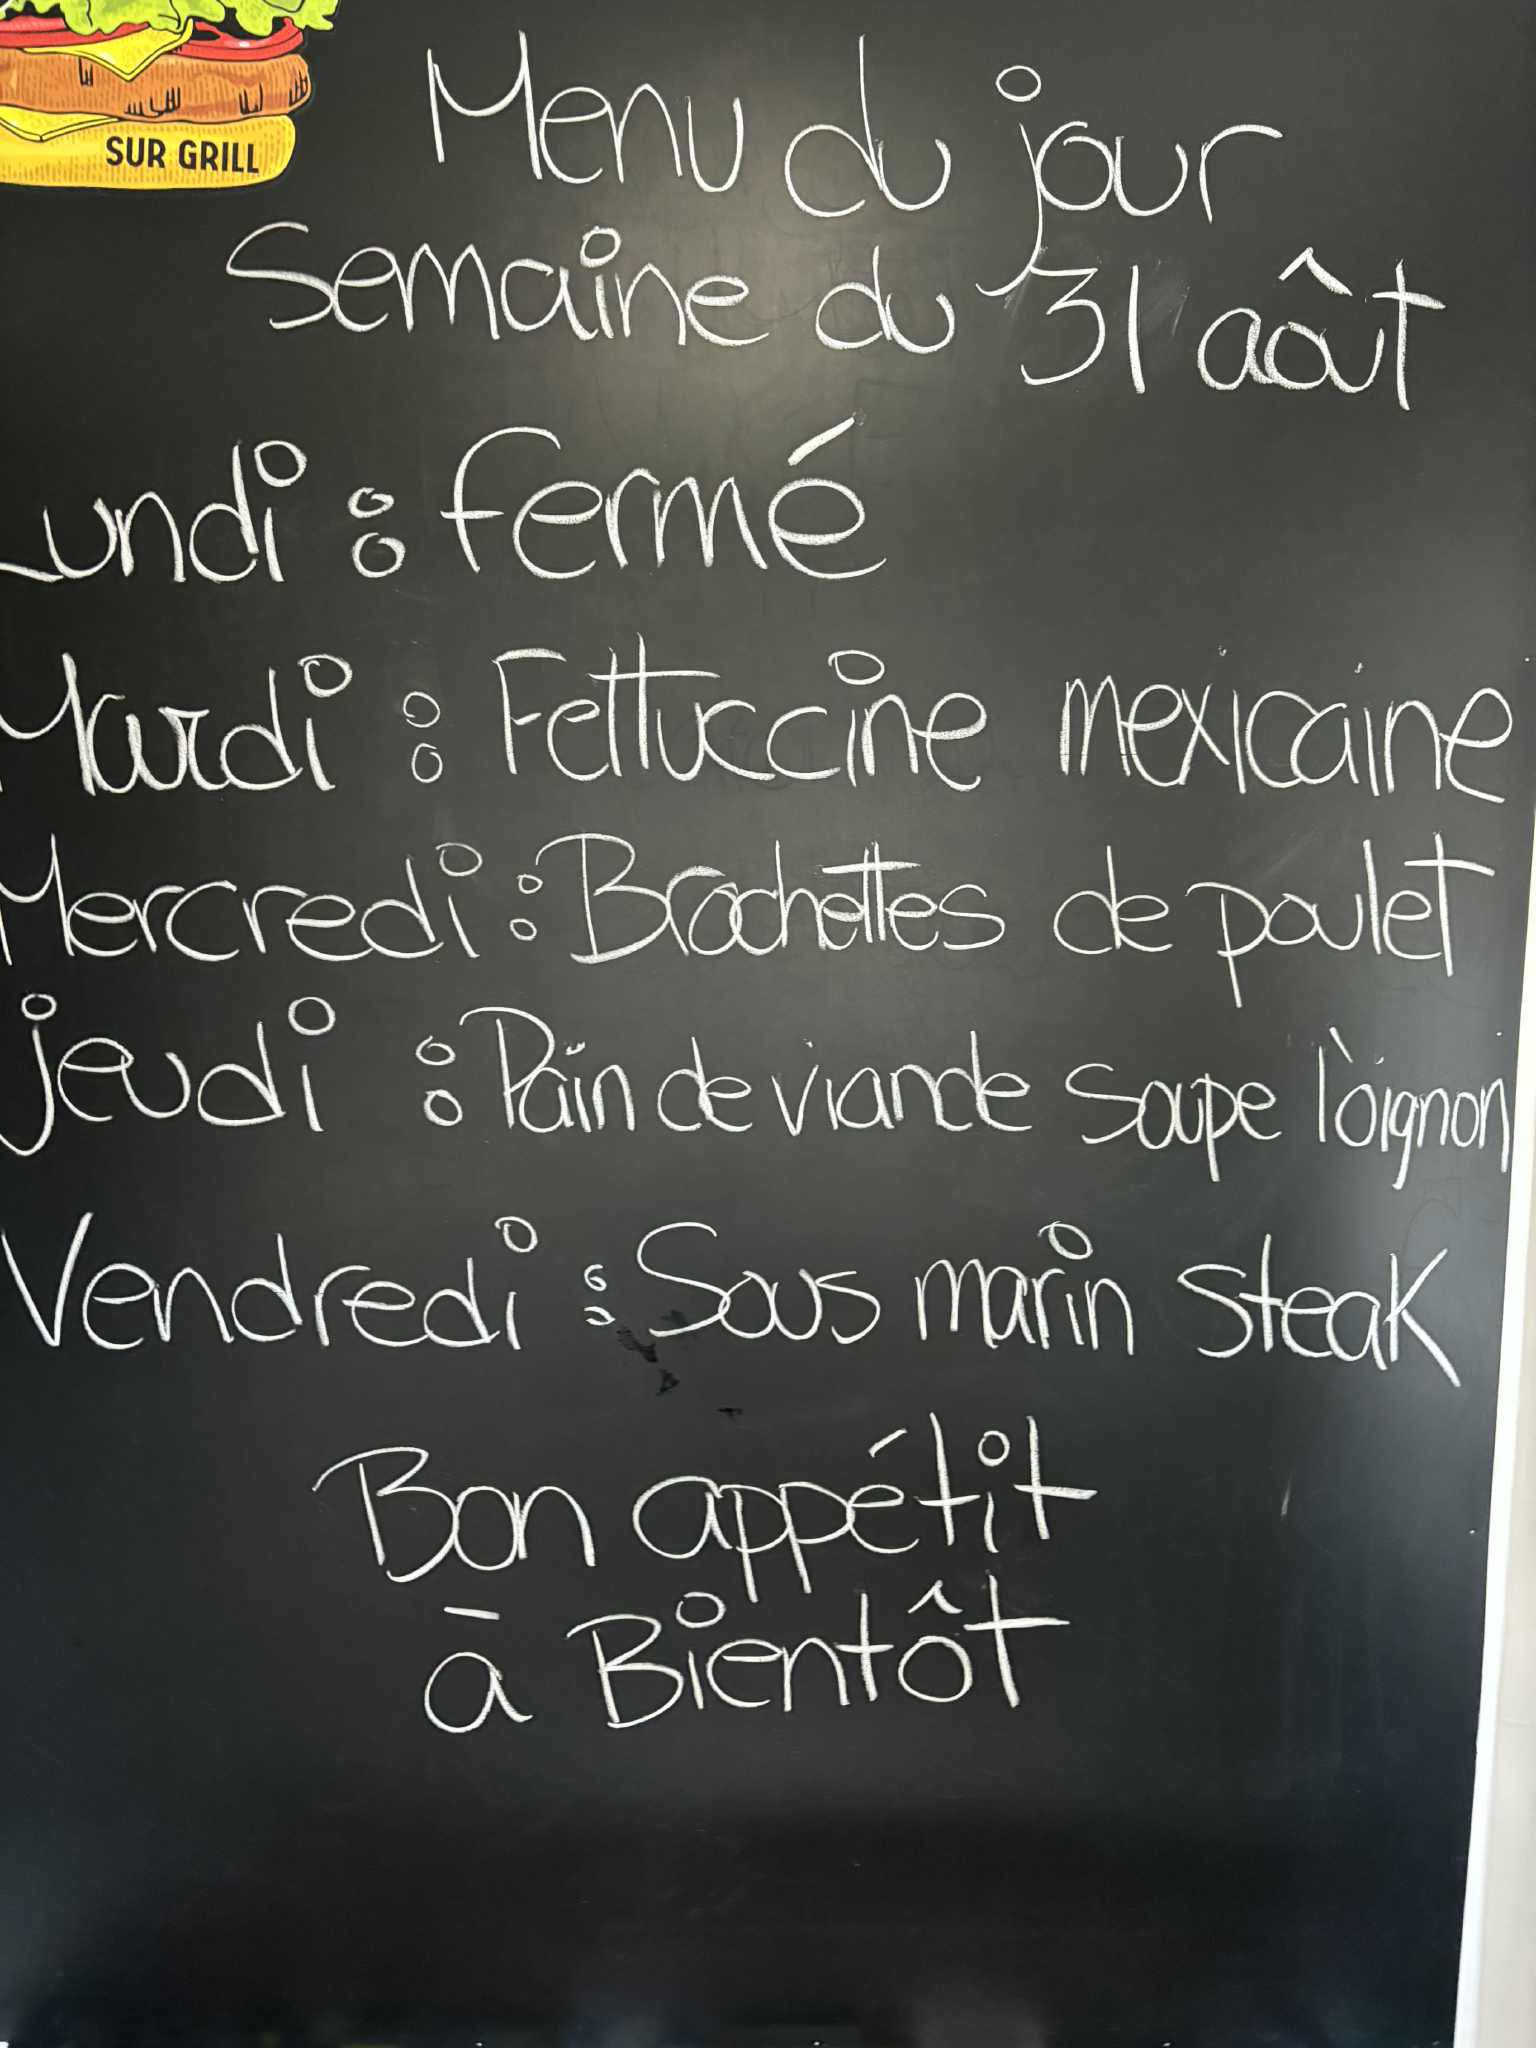 SUR GRILL
Menu du jour
Semaine du 31 août
Lundi : fermé
Mardi : Fettuccine mexicaine
Mercredi : Brochettes de poulet
jeudi : Pain de viande soupe l'oignon
Vendredi : Sous marin steak
Bon appétit
à Bientôt